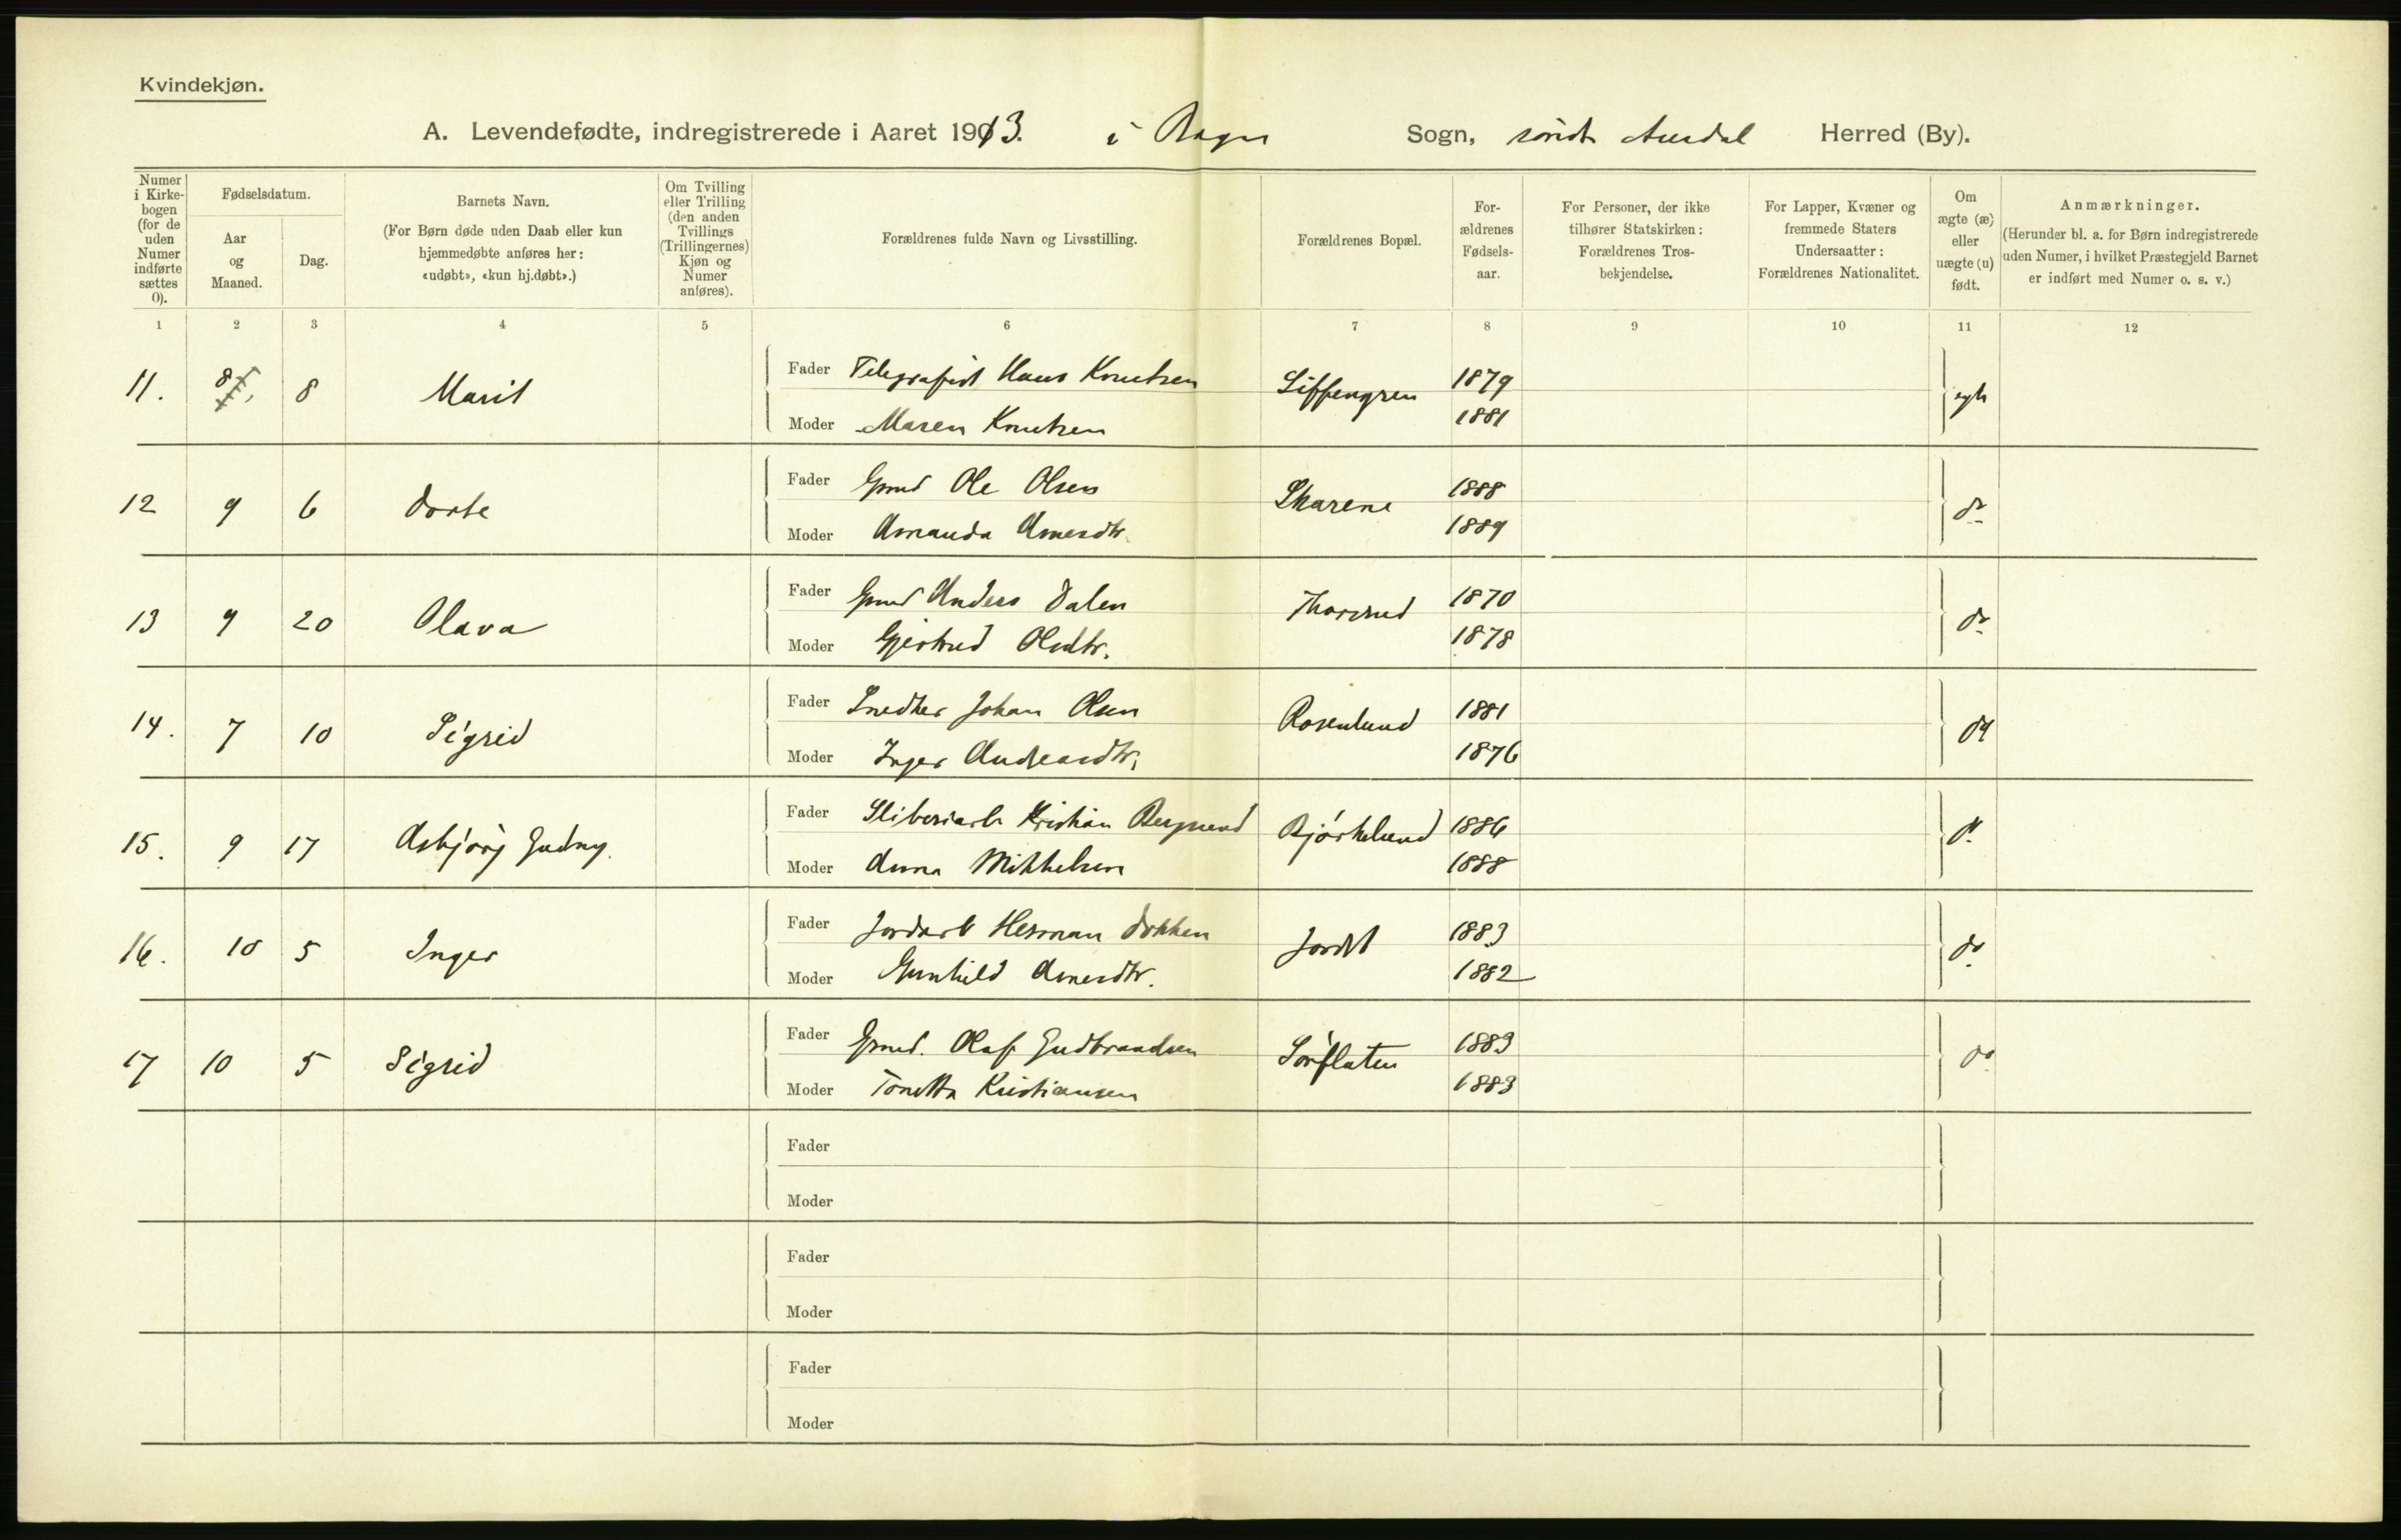 Kvindekjøn.
A. Levendefødte, indregistrerede i Aaret 1913. i Bagn Sogn, søndre Aurdal Herred (By).
Numer i Kirke-bogen (for de uden Numer indførte sættes 0).
Fødselsdatum.
Aar og Maaned.
Dag.
Barnets Navn.
(For Børn døde uden Daab eller kun hjemmedøbte anføres her: «udøbt», «kun hj.døbt».)
Om Tvilling eller Trilling (den anden Tvillings (Trillingernes) Kjøn og Numer anføres).
Forældrenes fulde Navn og Livsstilling.
Forældrenes Bopæl.
For-ældrenes Fødsels-aar.
For Personer, der ikke tilhører Statskirken: Forældrenes Tros-bekjendelse.
For Lapper, Kvæner og fremmede Staters Undersaatter: Forældrenes Nationalitet.
Om ægte (æ) eller uægte (u) født.
Anmærkninger.
(Herunder bl. a. for Børn indregistrerede uden Numer, i hvilket Præstegjeld Barnet er indført med Numer o. s. v.)
1 2 3 4 5 6 7 8 9 10 11 12
11. 8 8 Marit Fader Telegrafist Hans Knutsen 1879
Moder Maren Knutsen 1881
12 9 6 Dorte Fader Gmd Ole Olsen Skarene 1888 do
Moder Amanda Arnesdtr. 1889
13 9 20 Olava Fader Gmd Anders Dalen Thorsrud 1870 do
Moder Gjertrud Olsdtr. 1878
14. 7 10 Sigrid Fader Snedker Johan Olsen Rosenlund 1881 do
Moder Inger Andreasdtr. 1876
15. 9 17 Asbjørg Gudny. Fader Sliberiarb Kristian Bergsrud Bjørkelund 1886 do
Moder Anna Mikkelsen 1888
16. 10 5 Inger Fader Jordarb Herman Dokken Jordet 1883 do
Moder Gunhild Arnesdtr. 1882
17 10 5 Sigrid Fader Gmd. Olaf Gudbrandsen Sørflaten 1883 do
Moder Tonetta Kristiansen 1883
Fader
Moder
Fader
Moder
Fader
Moder